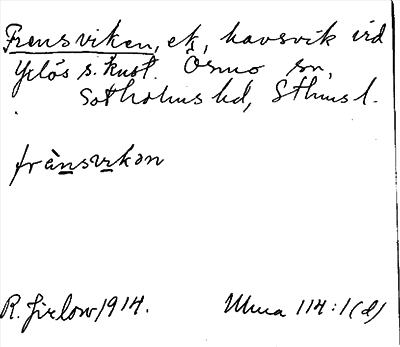 Frensviken, ek, havsvik vid
Yxlös s. kust. Ösmo sn,
Sotholms hd, Sthms l.
frȧnsvikən
R. Jirlow 1914. Muua 114:1(d)